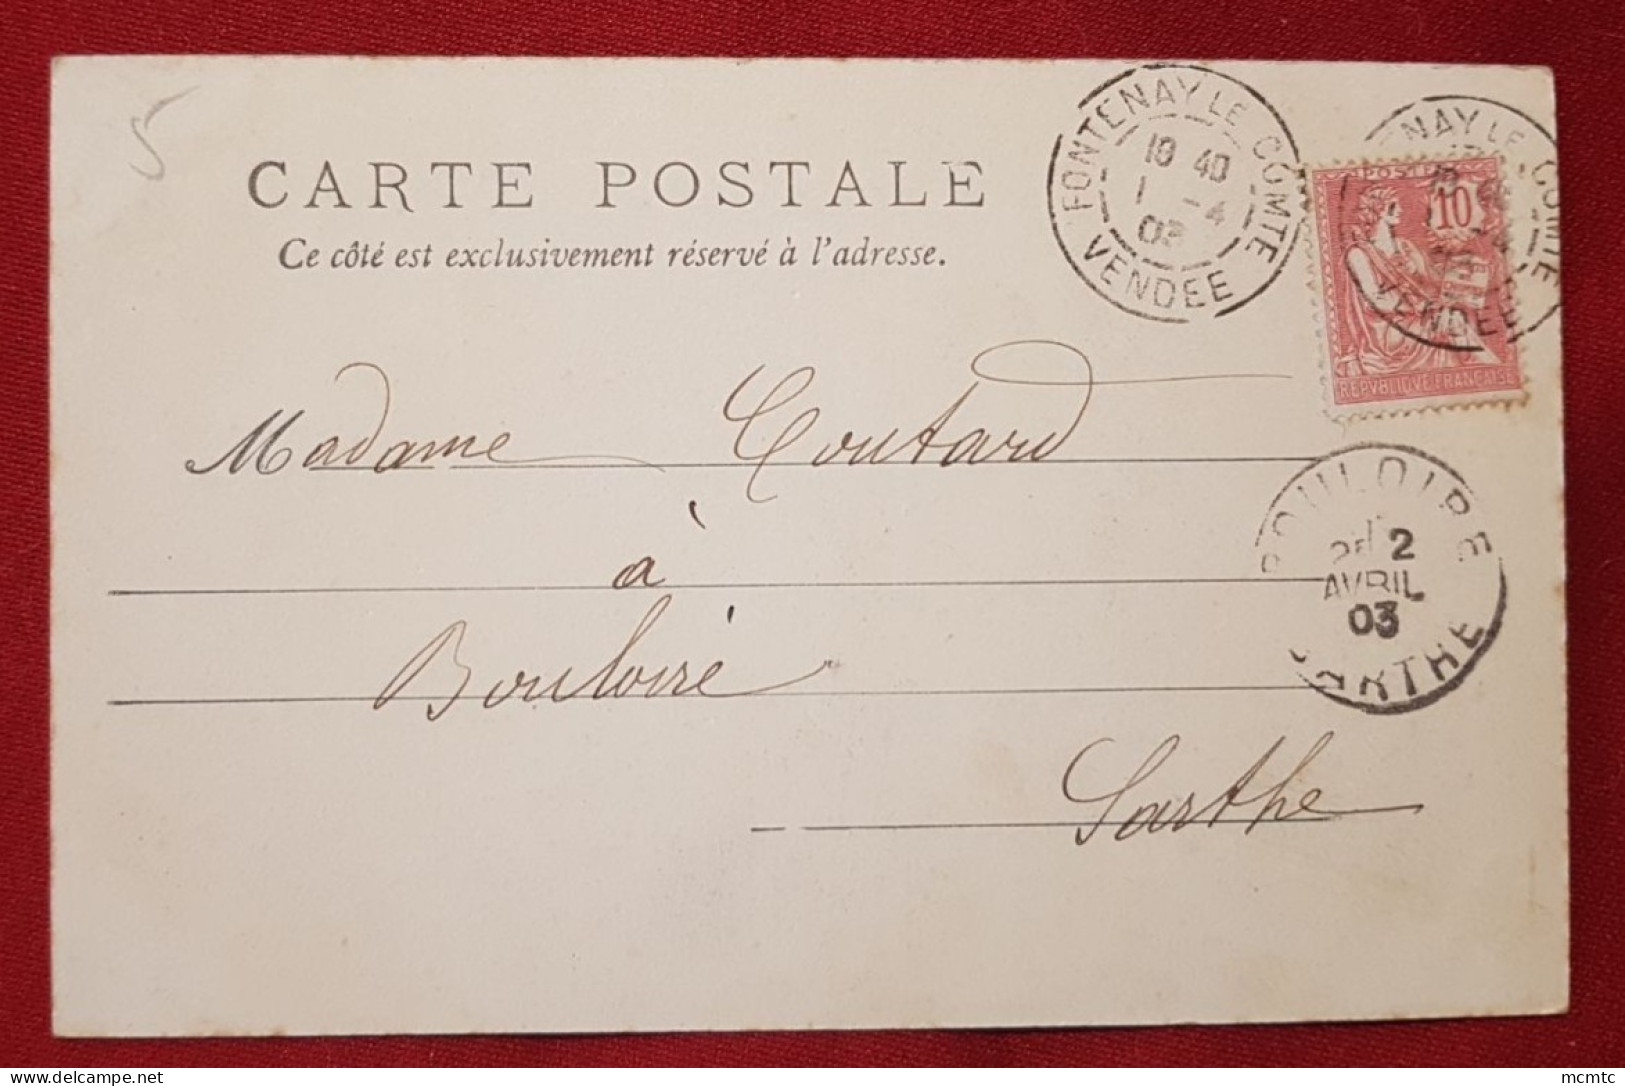 5
CARTE POSTALE
Ce côté est exclusivement réservé à l'adresse.
FONTENAY LE COMTE
10 40
1 -4
03
VENDEE
NAY LE COMTE
VENDEE
POSTES
10
REPVBLIQVE FRANÇAISE
Madame Coutard
à
Bouloire
Sarthe
BOULOIRE
2
AVRIL
03
SARTHE
mcmtc